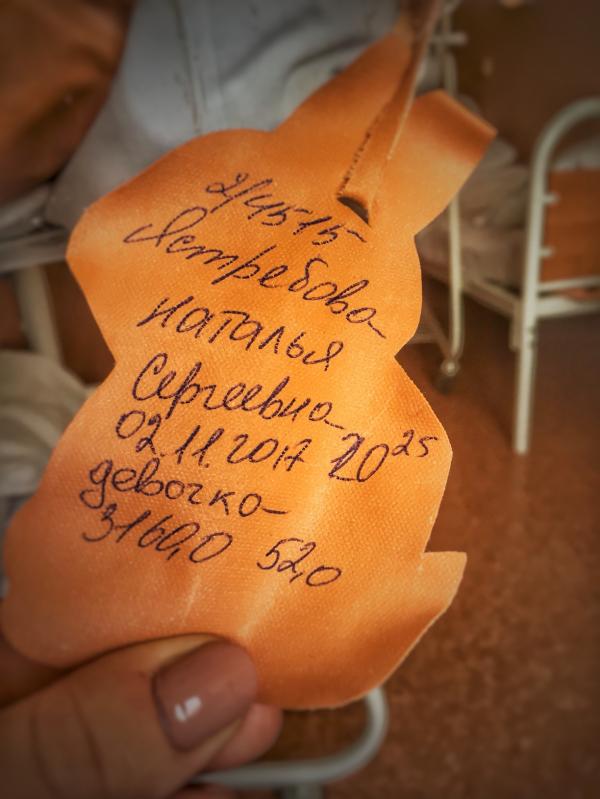 2/4515
Ястребова
Наталья
Сергеевна
02.11.2017 20²⁵
девочка
3160,0 52,0